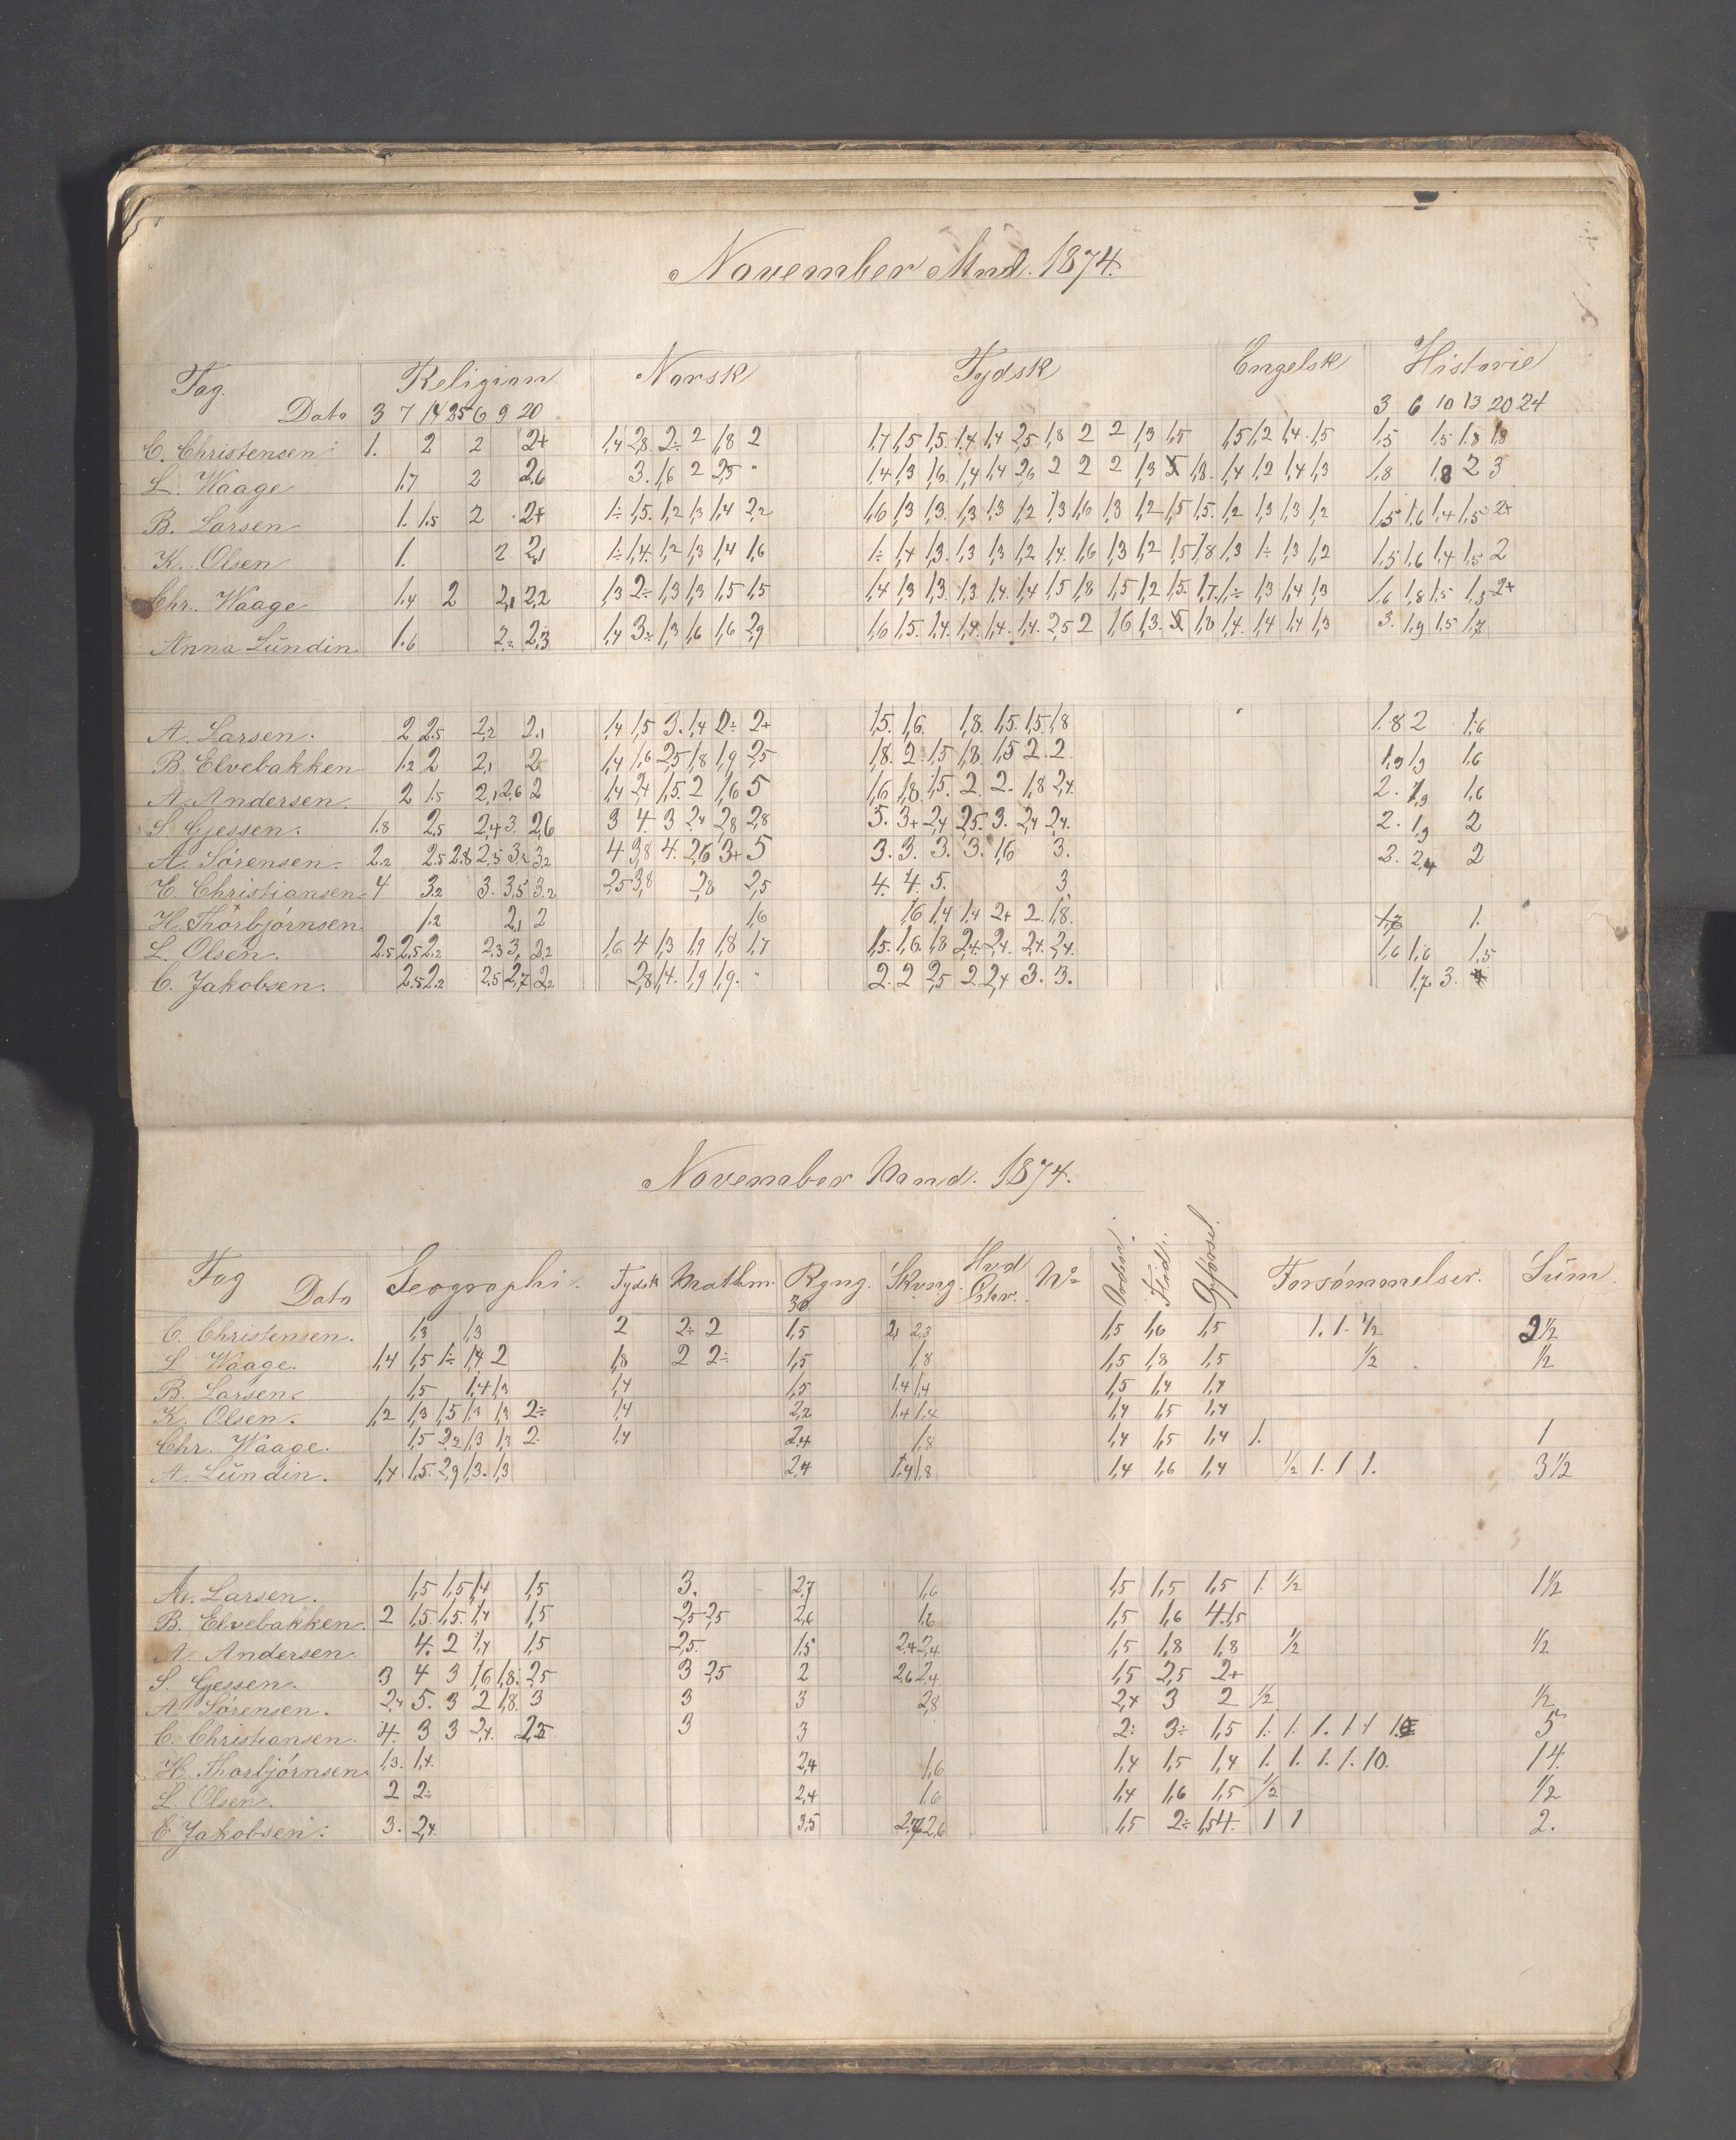 November Mnd. 1874.
Fag. Religion Norsk Tydsk Engelsk Historie
Dato 3 7 14 25 6 9 20 3 6 10 13 20 24
C. Christensen 1. 2 2 2+ 1,4 2,8 2÷ 2 1,8 2 1,7 1,5 1,5. 1,4 1,4 2,5 1,8 2 2 1,3 1,5 1,5 1,2 1,4 1,5 1,5 1,5 1,8 1,8
L. Waage 1,7 2 2,6 3. 1,6 2 2,5 " 1,4 1,3 1,6. 1,4 1,4 2,6 2 2 2 1,3 1,8. 1,4 1,2 1,4 1,3 1,8 1,8 2 3
B. Larsen 1. 1.5 2 2+ 1÷ 1,5. 1,2 1,3 1,4 2,2 1,6 1,3 1,3. 1,3 1,3 1,2 1,3 1,6 1,3 1,2 1,5 1,5. 1,2 1,3 1,3 1,2 1,5 1,6 1,4 1,5 2+
K. Olsen 1. 2 2,1 1÷ 1,4. 1,2 1,3 1,4 1,6 1÷ 1,4 1,3. 1,3 1,3 1,2 1,4. 1,6 1,3 1,2 1,5 1,8 1,3 1÷ 1,3 1,2 1,5 1,6 1,4 1,5 2
Chr. Waage 1,4 2 2,1 2,2 1,3 2÷ 1,3 1,3 1,5 1,5 1,4 1,3 1,3. 1,3 1,4. 1,4 1,5 1,8 1,5 1,2 1,5. 1,7. 1÷ 1,3 1,4 1,3 1,6 1,8 1,5 1,5 2+
Anna Lündin 1.6 2,2 2,3 1,4 3÷ 1,3 1,6 1,6 2,9 1,6 1,5. 1,4. 1,4. 1,4. 1,4. 2,5 2 1,6 1,3. 1,8 1,4. 1,4 1,4 1,3 3. 1,9 1,5 1,7
A. Larsen. 2 2.5 2,2 2,1 1,4 1,5 3. 1,4 2÷ 2+ 1,5. 1,6. 1,8. 1,5. 1,5. 1,8 1.8 2 1,6
B. Elvebakken 1.2 2 2,1 2 1,4 1,6 2,5 1,8 1,9 2,5 1,8. 2. 1,5 1,8. 1,5 2. 2. 1,9 1,9 1,6
A. Andersen. 2 1.5 2,1 2,6 2 1,4 2,4 1,5. 2 1,6 5 1,6 1,8. 1,5. 2. 2. 1,8 2,4. 2. 1,9 1,6
S. Gjessen. 1.8 2,5 2,4 3. 2,6 3 4. 3 2,4 2,8 2,8 5. 3+ 2,4 2,5. 3. 2,4 2,4. 2. 1,9 2
A. Sörensen. 2.2 2.5 2.8 2,5 3,2 3,2 4 3,8 4. 2,6 3+ 5 3. 3. 3. 3. 1,6 3. 3. 2,4 2
E. Christiansen 4 3.2 3. 3,5 3.2 2,5 3,8 2,8 2,5 4. 4. 5. 3
H. Thorbjörnsen 1.2 2,1 2 1,6 1,6 1,4 1,4 2+ 2. 1,8. 1.
L. Olsen. 2.5 2,5 2,2 2.3 3, 2,2 1,6 4 1,3 1,9 1,8 1,7 1,5. 1,6. 1,8 2,4. 2,4. 2,4. 2,4. 1,6 1,6 1,5
C. Jakobsen. 2.5 2.2 2.5 2,7 2,2 2,8 1,4. 1,9 1,9. " 2. 2 2,5 2. 2,4 3. 3. 1,7 3.
November Mand. 1874.
Fag Dato Geographi. Tydsk Mathm. Rgng. Skvng. Hvd Skr. Nº Orden. Flid. Opførsel. Forsømmelser. Süm.
30
C. Christensen. 1,3 1,3 2 2+ 2 1,5 2,1 2,3 1,5 1,6 1,5 1. 1. 1/2 2 1/2
L. Waage. 1,4 1,5 1÷ 1,4 2 1,8 2 2÷ 1,5 1,8 1,5 1,8 1,5 1/2 1/2
B. Larsen. 1,5 1,4 1,3 1,4 1,5 1,4 1,4 1,5 1,4 1,4
K. Olsen. 1,2 1,3 1,5 1,3 1,3 2÷ 1,4 2,2 1,4 1,4 1,4 1,5 1,4
Chr. Waage. 1,5 2,2 1,3 1,3 2 1,4 2,4 1,8 1,4 1,5 1,4 1. 1
A. Lündin. 1,4 1,5. 2,9 1,3. 1,3 2,4 1,4 1,8 1,4 1,6 1,4 1/2 1. 1 1. 3 1/2
A. Larsen. 1,5 1,5 1,4 1,5 3. 2,7 1,6 1,5 1,5 1,5 1. 1/2 1 1/2
B. Elvebakken. 2 1,5. 1,5. 1,4 1,5 2,5 2,5 2,6 1,6 1,5 1,6 4. 1,5
A. Andersen 4. 2 1,4 1,5 2,5. 1,5 2,4 2,4 1,5 1,8 1,8 1/2 1/2
S. Gjessen. 3 4 3 1,6 1,8. 2,5 3 2,5 2 2,6 2,4 1,5 2,5 2+
A. Sörensen. 2,4 5. 3 2 1,8. 3 3 3 2,8 2,4 3 2 1/2 1/2
C. Christiansen. 4. 3 3 2,4. 2,5 3 3 2÷ 3÷ 1,5 1. 1. 1. 1. 1 5
H. Thorbjörnsen 1,3. 1,4. 2,4 1,6 1,4 1,5 1,4 1. 1. 1. 1. 10. 14.
L. Olsen. 2 2÷ 2,4 1,6 1,4 1,6 1,5 1/2 1/2
E. Jakobsen. 3. 2,4. 3,5 2,6 1,5 2÷ 1,5 4. 1 1 2.